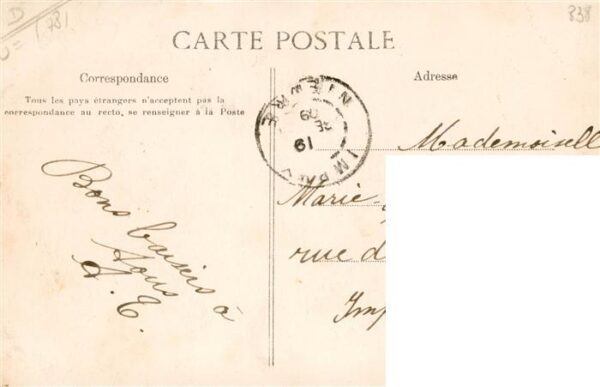 D
1781
838
CARTE POSTALE
Correspondance
Adresse
Tous les pays étrangers n'acceptent pas la
correspondance au recto, se renseigner à la Poste
19
Mademoisell
Marie
rue d
Imp
Bons baisers à
tous
A. T.